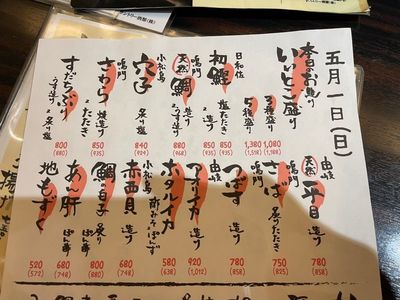 五月一日(日)
本日のお造り
いいとこ盛り
3種盛り
1,380
(1,518)
5種盛り
1,080
(1,188)
日和佐
初鰹
塩たたき
850
(935)
造り
850
(935)
鳴門
天然
鯛
造り
うす造り
880
(968)
小松島
穴子
炙り塩
840
(924)
鳴門
さわら
焼造り
たたき
850
(935)
すだちぶり
炙り塩
うす造り
800
(880)
由岐
天然
平目
造り
780
(858)
鳴門
さば
炙りたたき
750
(825)
由岐
つばす
造り
780
(858)
アオリイカ
造り
920
(1,012)
ホタルイカ
酢みそ
ぽんず
580
(638)
小松島
赤西貝
造り
680
(748)
鯛の白子
炙り
ぽん酢
800
(880)
あん肝
ぽん酢
680
(748)
地もずく
520
(572)